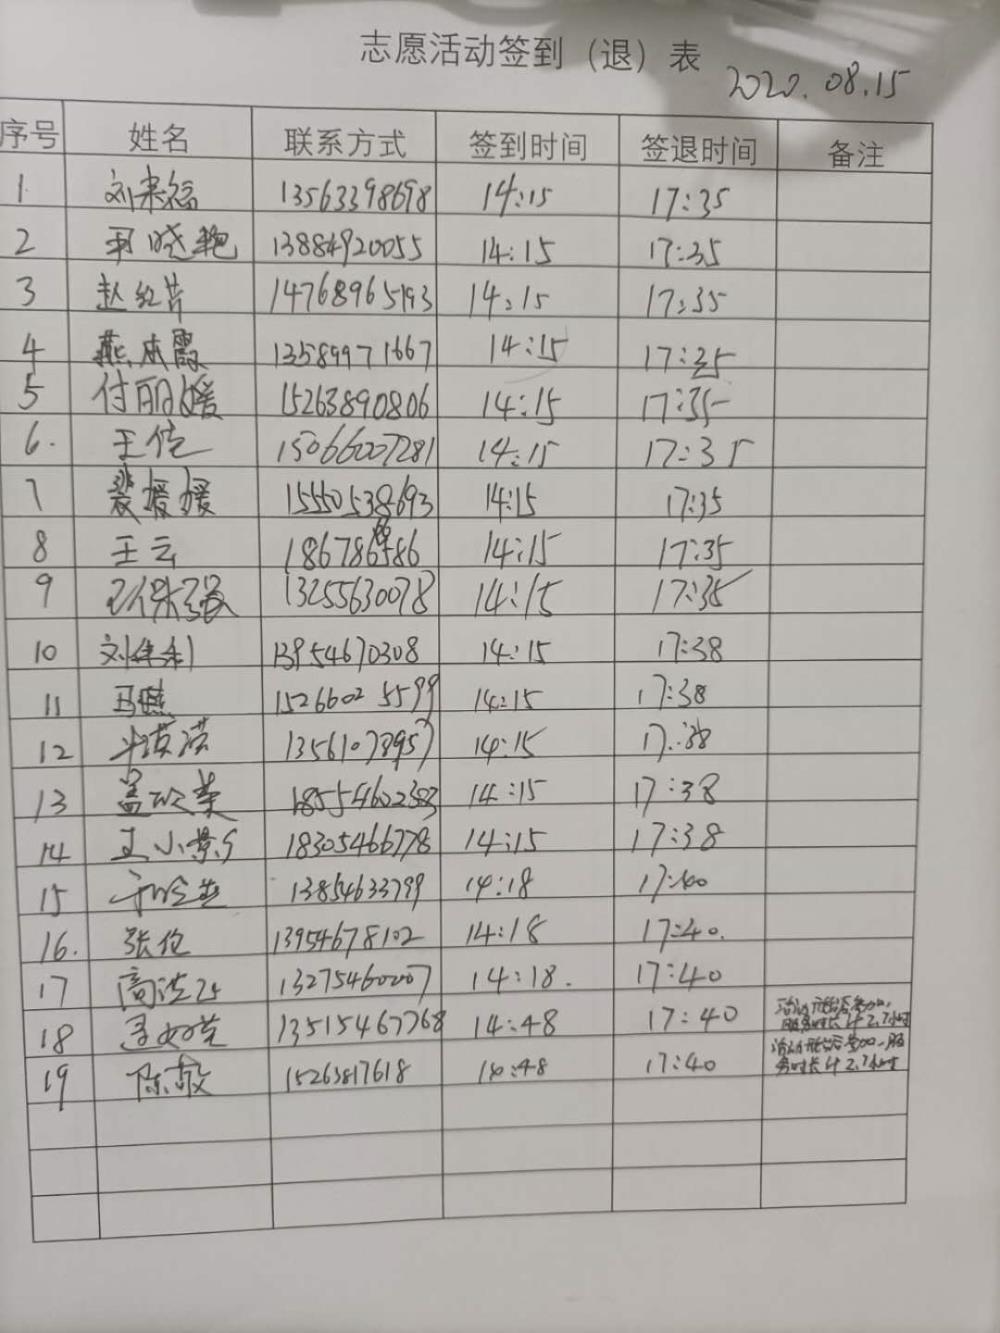 志愿活动签到（退）表
2020.08.15
序号 姓名 联系方式 签到时间 签退时间 备注
1 刘来福 13563398698 14:15 17:35
2 尹晓艳 13884920055 14:15 17:35
3 赵红芹 14768965193 14:15 17:35
4 燕本霞 13589971667 14:15 17:35
5 付丽媛 15263890806 14:15 17:35
6. 王伟 15066007281 14:15 17:35
7 裴媛媛 15550538693 14:15 17:35
8 王云 14:15 17:35
9 王保强 13255630078 14:15 17:35
10 刘 13954670308 14:15 17:38
11 马燕 15266025599 14:15 17:38
12 13561073957 14:15 17:38
13 盖 18554602383 14:15 17:38
14 王小 18305466778 14:15 17:38
15 13854633799 14:18 17:40
16. 张伦 13954678102 14:18 17:40.
17 高 13275460007 14:18. 17:40
18 孟 13515467768 14:48 17:40 活动开始后参加，
服务时长计2.7小时
19 陈敬 15263817618 14:48 17:40 活动开始后参加，服
务时长计2.7小时